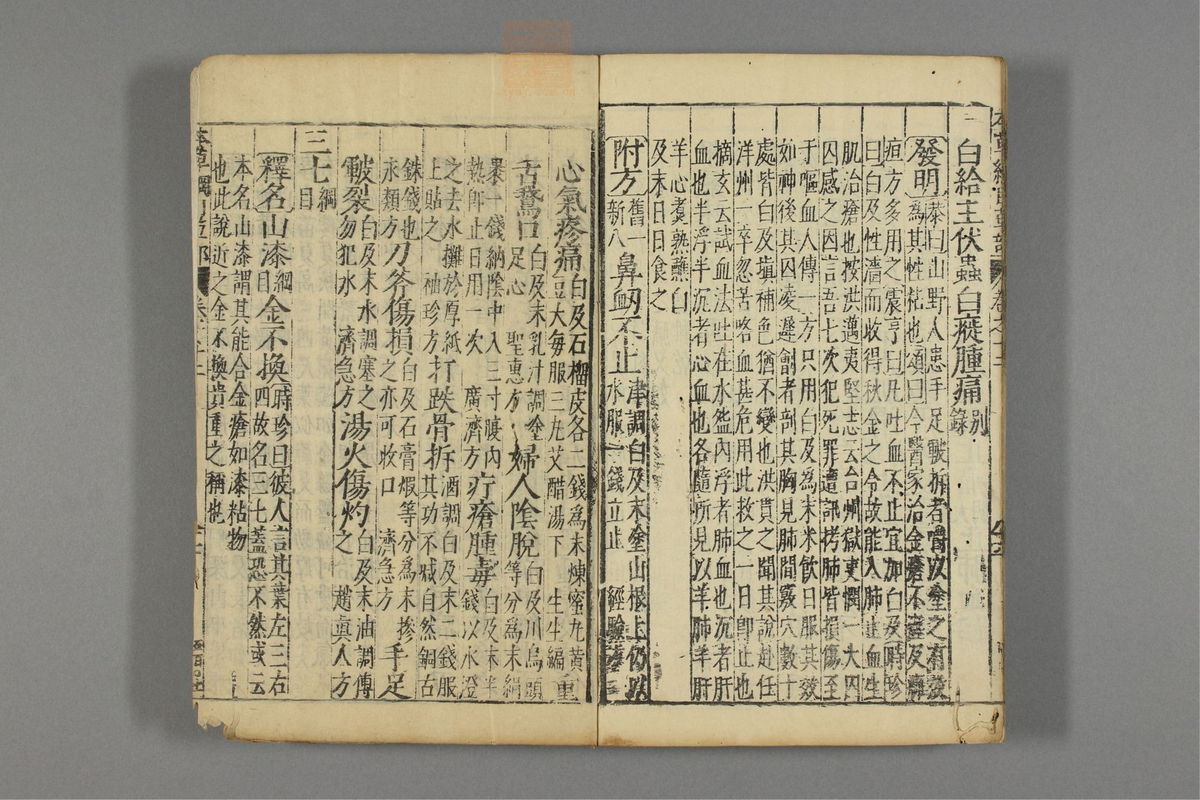 白給主伏蟲白癬腫痛別錄
發明恭曰山野人患手足皸拆者嚼以塗之有效
為其性粘也頌曰今醫家治金瘡不瘥及癰
疽方多用之震亨曰凡吐血不止宜加白及時珍
曰白及性濇而收得秋金之令故能入肺止血生
肌治瘡也按洪邁夷堅志云台州獄吏憫一大囚
囚感之因言吾七次犯死罪遭訊拷肺皆損傷至
于嘔血人傳一方只用白及為末米飲日服其效
如神後其囚凌遲劊者剖其胸見肺間竅穴數十
處皆白及填補色猶不變也洪貫之聞其說赴任
洋州一卒忽苦咯血甚危用此救之一日即止也
摘玄云試血法吐在水盌內浮者肺血也沉者肝
血也半浮半沉者心血也各隨所見以羊肺羊肝
羊心煮熟蘸白
及末日日食之
附方舊一新八鼻衂不止津調白及末塗山根上仍以
水服一錢立止 經驗
心氣疼痛白及石榴皮各二錢為末煉蜜丸黃
豆大每服三丸艾醋湯下 生生編 重
舌鵞口白及末乳汁調塗
足心 聖惠方 婦人陰脫白及川烏頭
等分為末絹
裹一錢納陰中入三寸腹內
熱即止日用一次 廣濟方 疔瘡腫毒白及末半
錢以水澄
之去水攤於厚紙
上貼之 袖珍方 打跌骨拆酒調白及末二錢服
其功不減自然銅古
銖錢也
永類方 刀斧傷損白及石膏煆等分為末摻
之亦可收口 濟急方 手足
皸裂白及末水調塞之
勿犯水 濟急方 湯火傷灼白及末油調傅
之 趙真人方
三七綱目
釋名山漆綱目金不換時珍曰彼人言其葉左三右
四故名三七蓋恐不然或云
本名山漆謂其能合金瘡如漆粘物
也此說近之金不換貴重之稱也